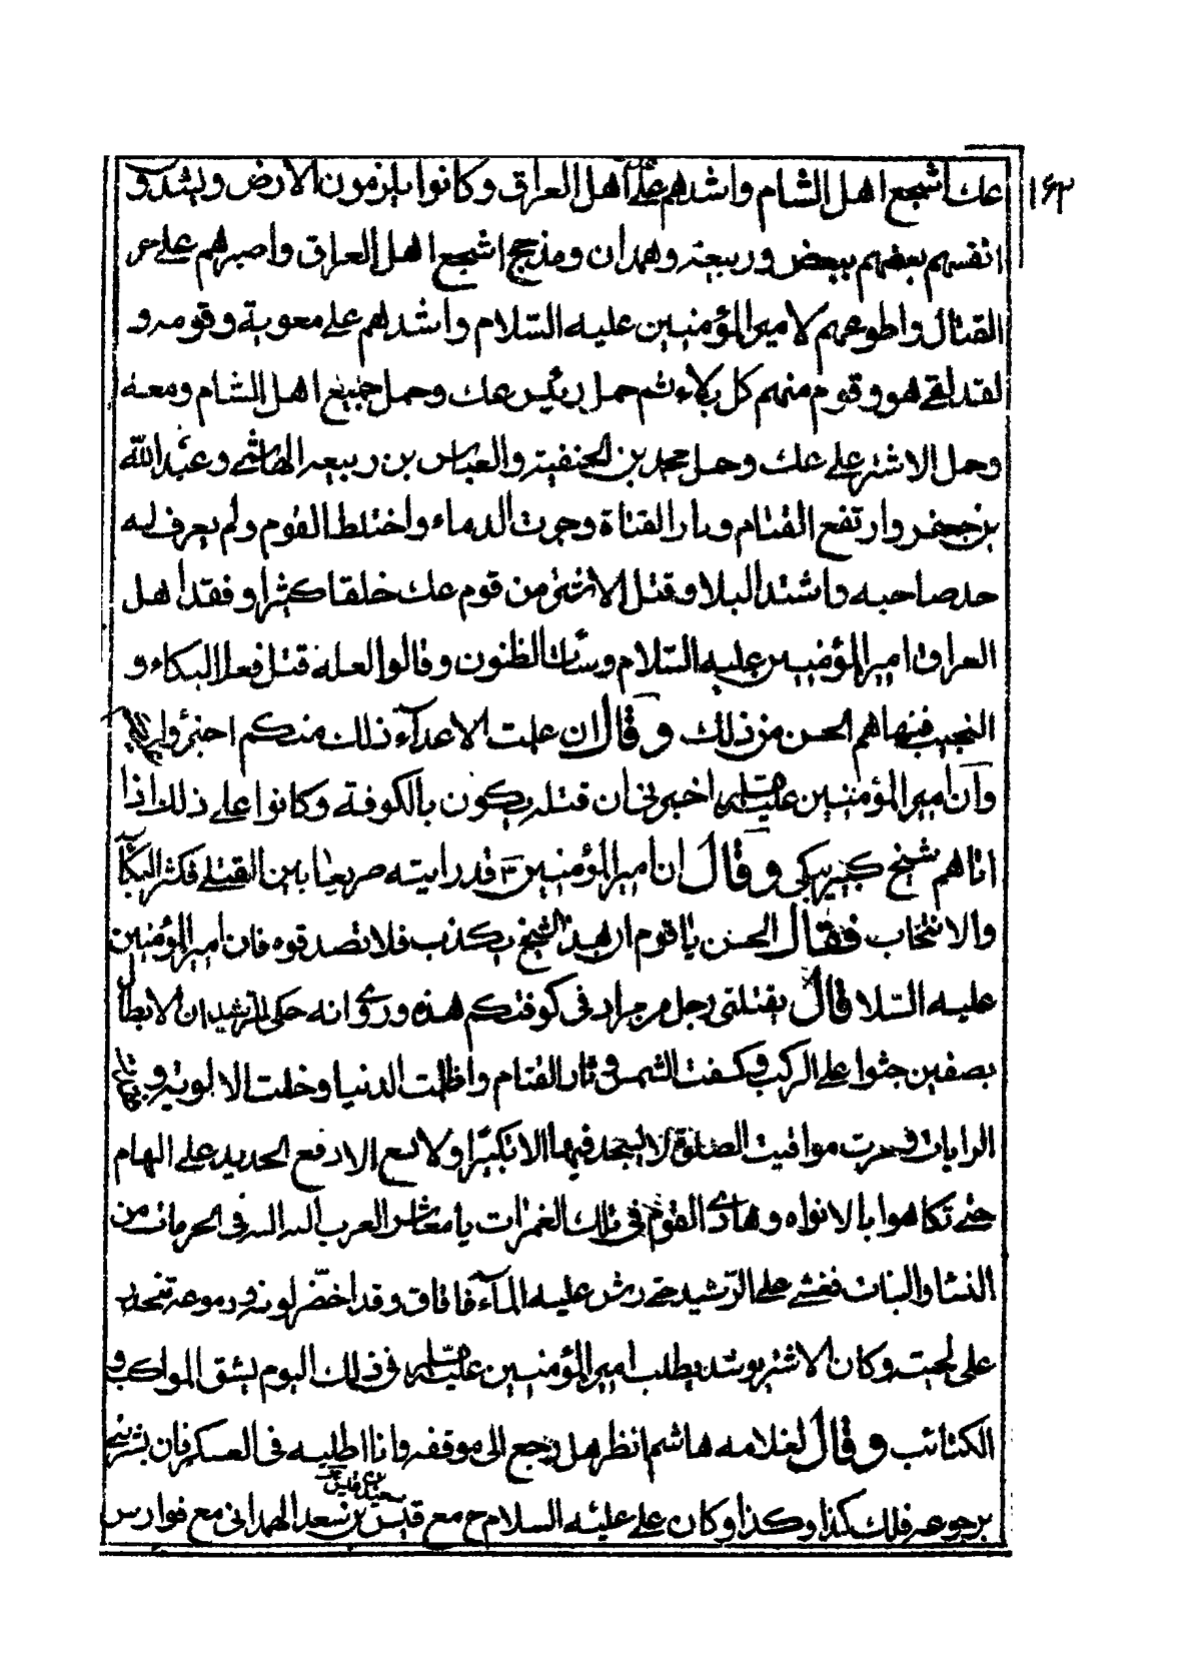 ١٤٣
عك اشجع اهل الشام واشدهم على اهل العراق وكانوا يلزمون الارض ويشدو
انفسهم بعضهم ببعض وربيعة وهمدان ومذحج اشجع اهل العراق واصبرهم على حر
القتال واطوعهم لامير المؤمنين عليه السلام واشدهم على معوية وقومه و
لقد لقى هو وقوم منهم كل بلاء ثم حمل رئيس عك وحمل جميع اهل الشام ومعه
وحمل الاشتر على عك وحمل محمد بن الحنفية والعباس بن ربيعه الهاشمى وعبد الله
بن جعفر وارتفع القتام وثار القتاة وجرت الدماء واختلط القوم ولم يعرف له
حد صاحبه واشتد البلا وقتل الاشتر من قوم عك خلقا كثيرا وفقد اهل
العراق امير المؤمنين عليه السلام وسائت الظنون وقالوا لعله قتل فعلا البكاء و
النحيب فنهاهم الحسن من ذلك وقال ان علمت الاعداء ذلك منكم اجترؤا
وان امير المؤمنين اخبرنى ان قتله يكون بالكوفة وكانوا على ذلك اذا
اتاهم شيخ كبير يبكى وقال ان امير المؤمنين قد رايته صريعا بين القتلى فكثر البكا
والانتحاب فقال الحسن يا قوم ان هذا الشيخ يكذب فلا تصدقوه فان امير المؤمنين
عليه السلا قال يقتلنى رجل من مراد فى كوفتكم هذه وروى انه حكى للرشيد ان الابطال
بصفين جثوا على الركب وكسفت الشمس فى ثار القتام واظلمت الدنيا وخلت الالوية و
الرايات ومرت مواقيت الصلوة لا يسجد فيها الا تكبيرا ولا تسمع الا دفع الحديد على الهام
حتى تكاهوا بالافواه وهادى القوم فى تلك الغمرات يا معاشر العرب الله الله فى الحرمات من
النسا والبنات فغشى على الرشيد حتى رش عليه المآء فافاق وقد اخضر لونه ودموعه تتحدر
على لحيته وكان الاشتر يومئذ يطلب امير المؤمنين فى ذلك اليوم يشق المواكب و
الكتائب وقال لغلامه هاشم انظر هل رجع الى موقفه وانا اطلبه فى العسكر فان بشرتنى
برجوعه فلك كذا وكذا وكان على عليه السلام مع قيس بن سعد الهمدانى مع فوارس